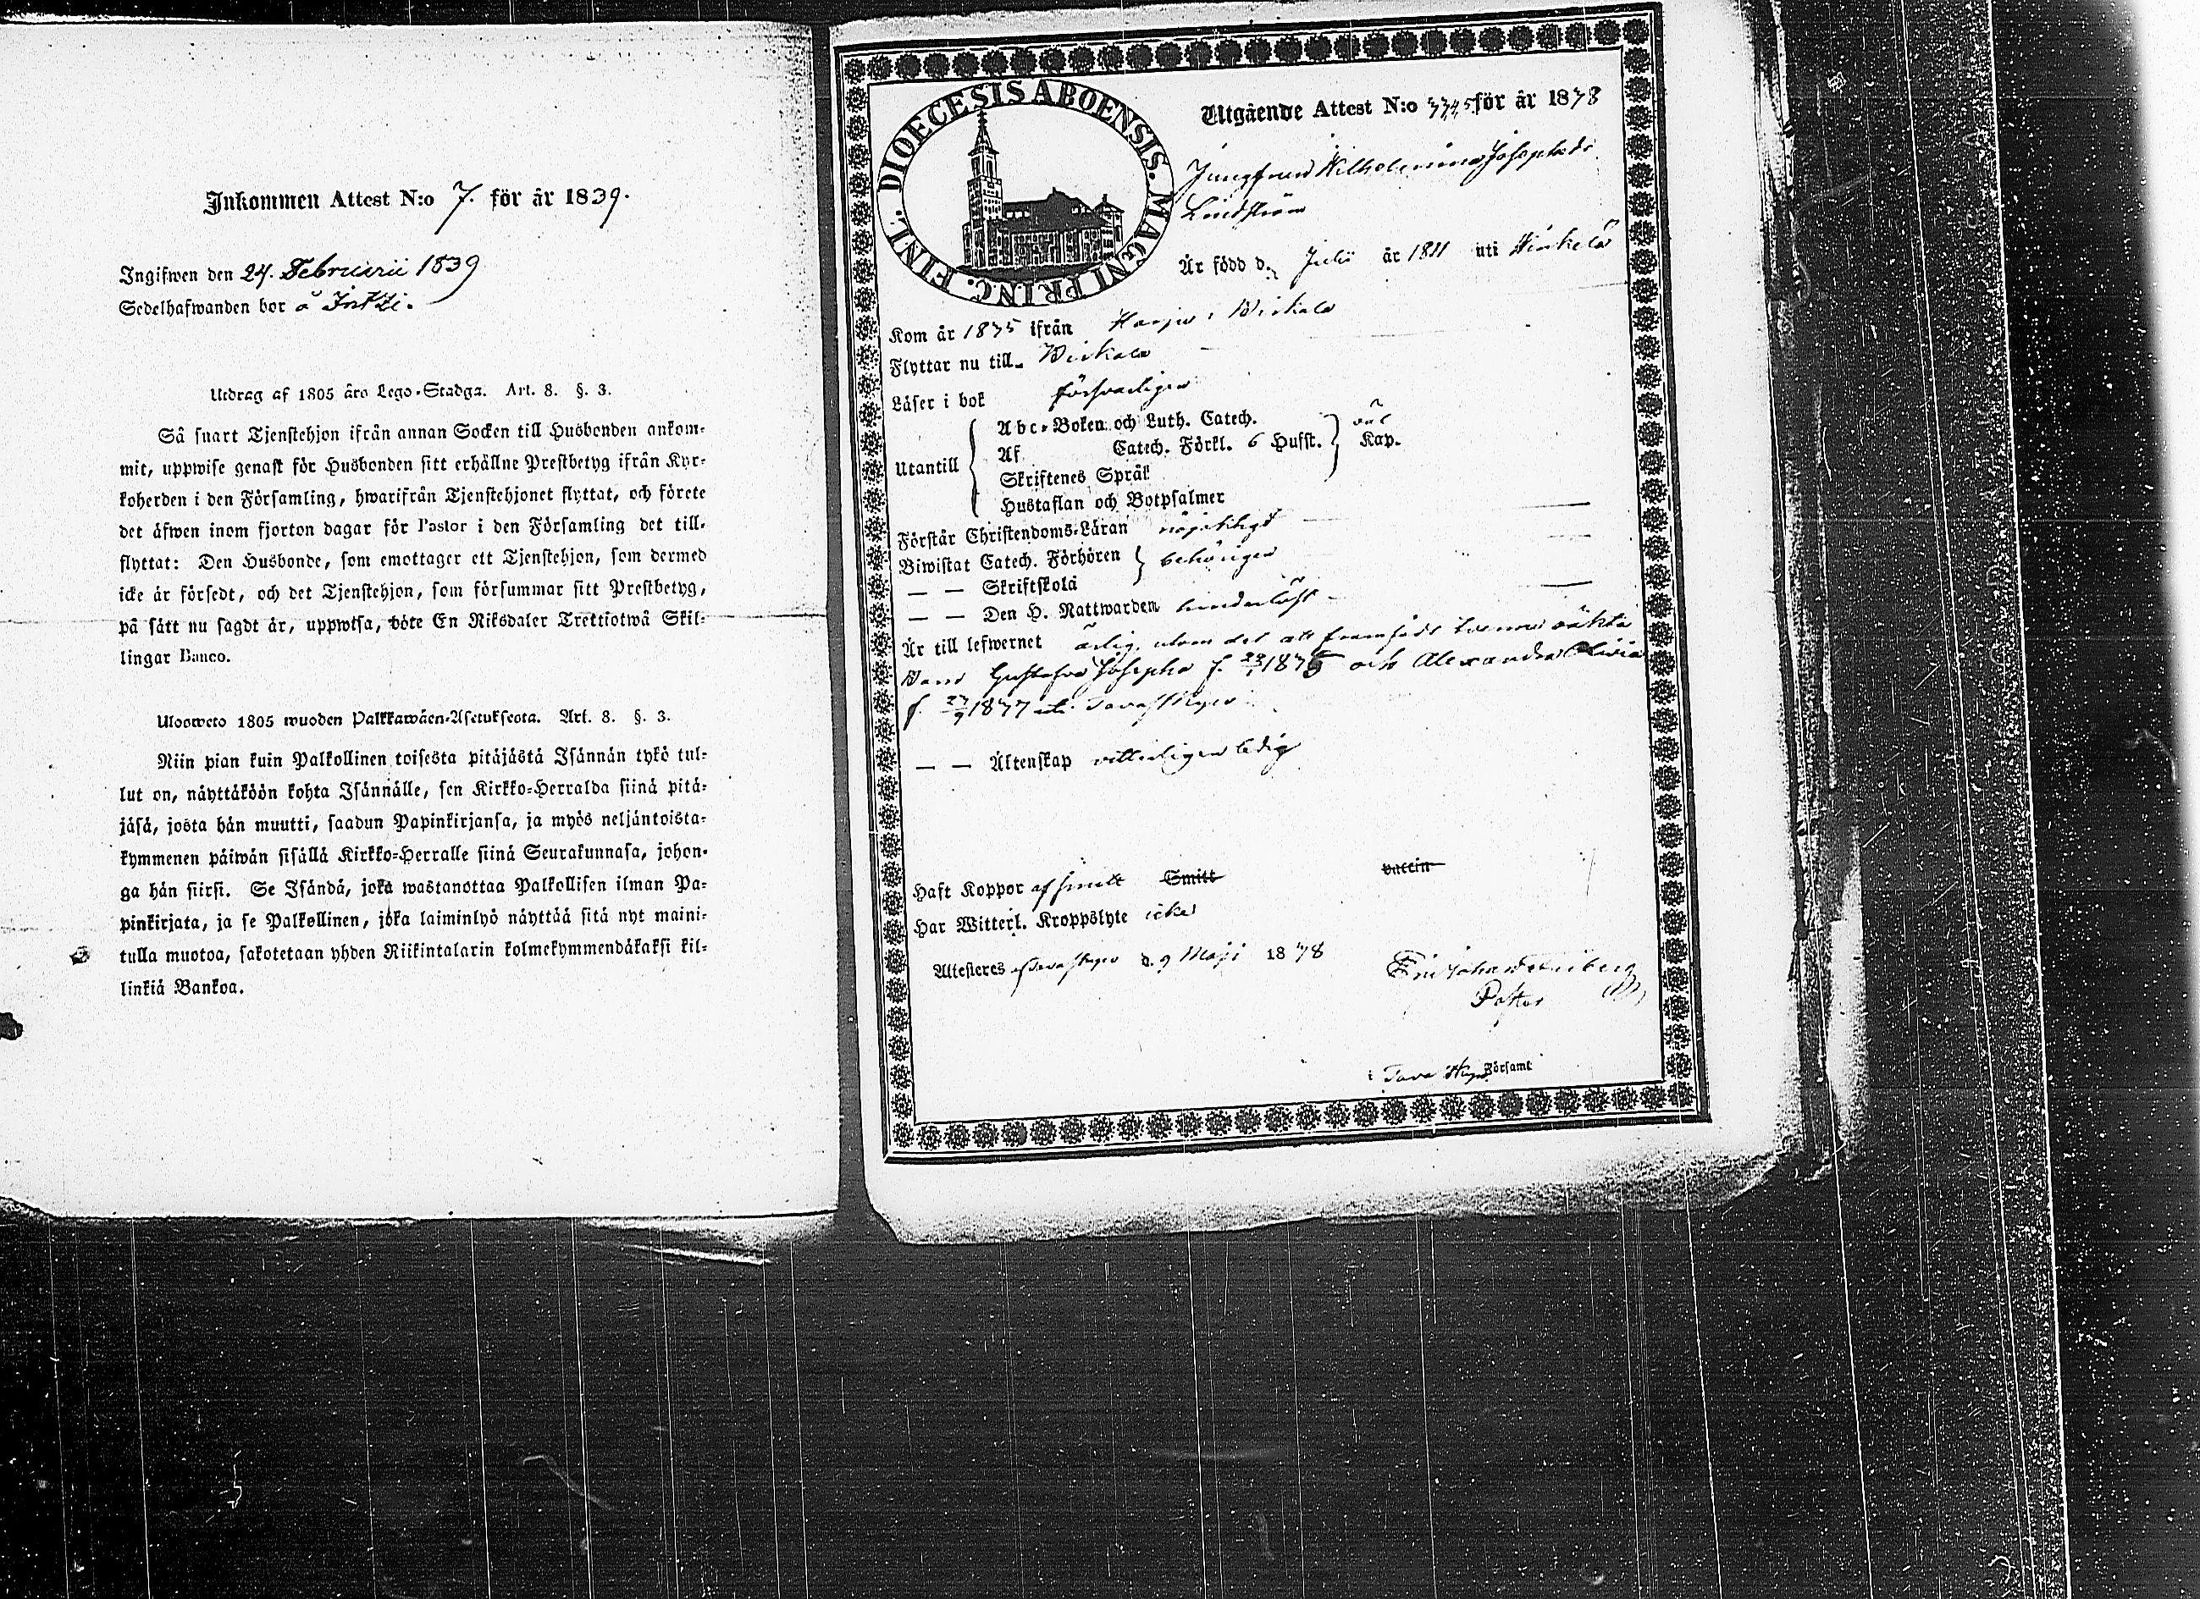 Inkommen Attest N:o 7. för år 1839.
Ingifwen den 24. Februarii 1839
Sedelhafwanden bor å
Utdrag af 1805 års Lego-Stadga. Art. 8. §. 3.
Så snart Tjenstehjon ifrån annan Socken till Husbonden ankom-
mit, uppwise genast för Husbonden sitt erhållne Prestbetyg ifrån Kyr-
koherden i den Församling, hwarifrån Tjenstehjonet flyttat, och förete
det äfwen inom fjorton dagar för Pastor i den Församling det till-
flyttat: Den Husbonde, som emottager ett Tjenstehjon, som dermed
icke är försedt, och det Tjenstehjon, som försummar sitt Prestbetyg,
på sätt nu sagdt är, uppwisa, böte En Riksdaler Trettiotwå Skil-
lingar Banco.
Ulosweto 1805 wuoden Palkkawäen-Asetuksesta. Art. 8. §. 3.
Niin pian kuin Palkollinen toisesta pitäjästä Isännän tykö tul-
lut on, näyttäköön kohta Isännälle, sen Kirkko-Herralda siinä pitä-
jäsä, josta hän muutti, saadun Papinkirjansa, ja myös neljäntoista-
kymmenen päiwän sisällä Kirkko-Herralle siinä Seurakunnasa, johon-
ga hän siirsi. Se Isändä, joka wastanottaa Palkollisen ilman Pa-
pinkirjata, ja se Palkollinen, joka laiminlyö näyttää sitä nyt maini-
tulla muotoa, sakotetaan yhden Riikintalarin kolmekymmendäkaksi kil-
linkiä Bankoa.
DIOECESIS ABOENSIS. MAGNI PRINC. FINL.
Utgående Attest N:o för år 1878
Jungfrun Wilhelmina Josephsdr
Lindström
Är född d. Julii år uti
Kom år 1875 ifrån Harju, Birkala
Flyttar nu till Birkala
Läser i bok försvarligen
Utantill
Abc-Boken och Luth. Catech. väl
Af Catech. Förkl. 6 Hufst. Kap.
Skriftenes Språk
Hustaflan och Botpsalmer
Förstår Christendoms-Läran nöjaktigt
Biwistat Catech. Förhören behörigen
— — Skriftskola
— — Den H. Nattwarden hinderlöst
Är till lefwernet ärlig, utom det att framfödt tvenne oäkta
Barn Gustafva Josepha f. 1875 och Alexandra Olivia
f. 27/9 1877
— — Äktenskap vitterligen ledig
Haft Koppor af smitt Smitt vaccin
Har Witterl. Kroppslyte icke
Attesteras af Tavastkyro d. 9 Maji 1878
Pastor
i Tavastkyro Församl